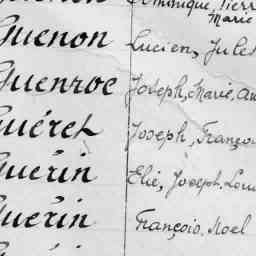 Dominique, Pierre
Marie
Guenon Lucien, Jules
Guenroc Joseph, Marie, Au
Guéret Joseph, Françoi
Guérin Elie, Joseph, Loui
Guérin François, Noel